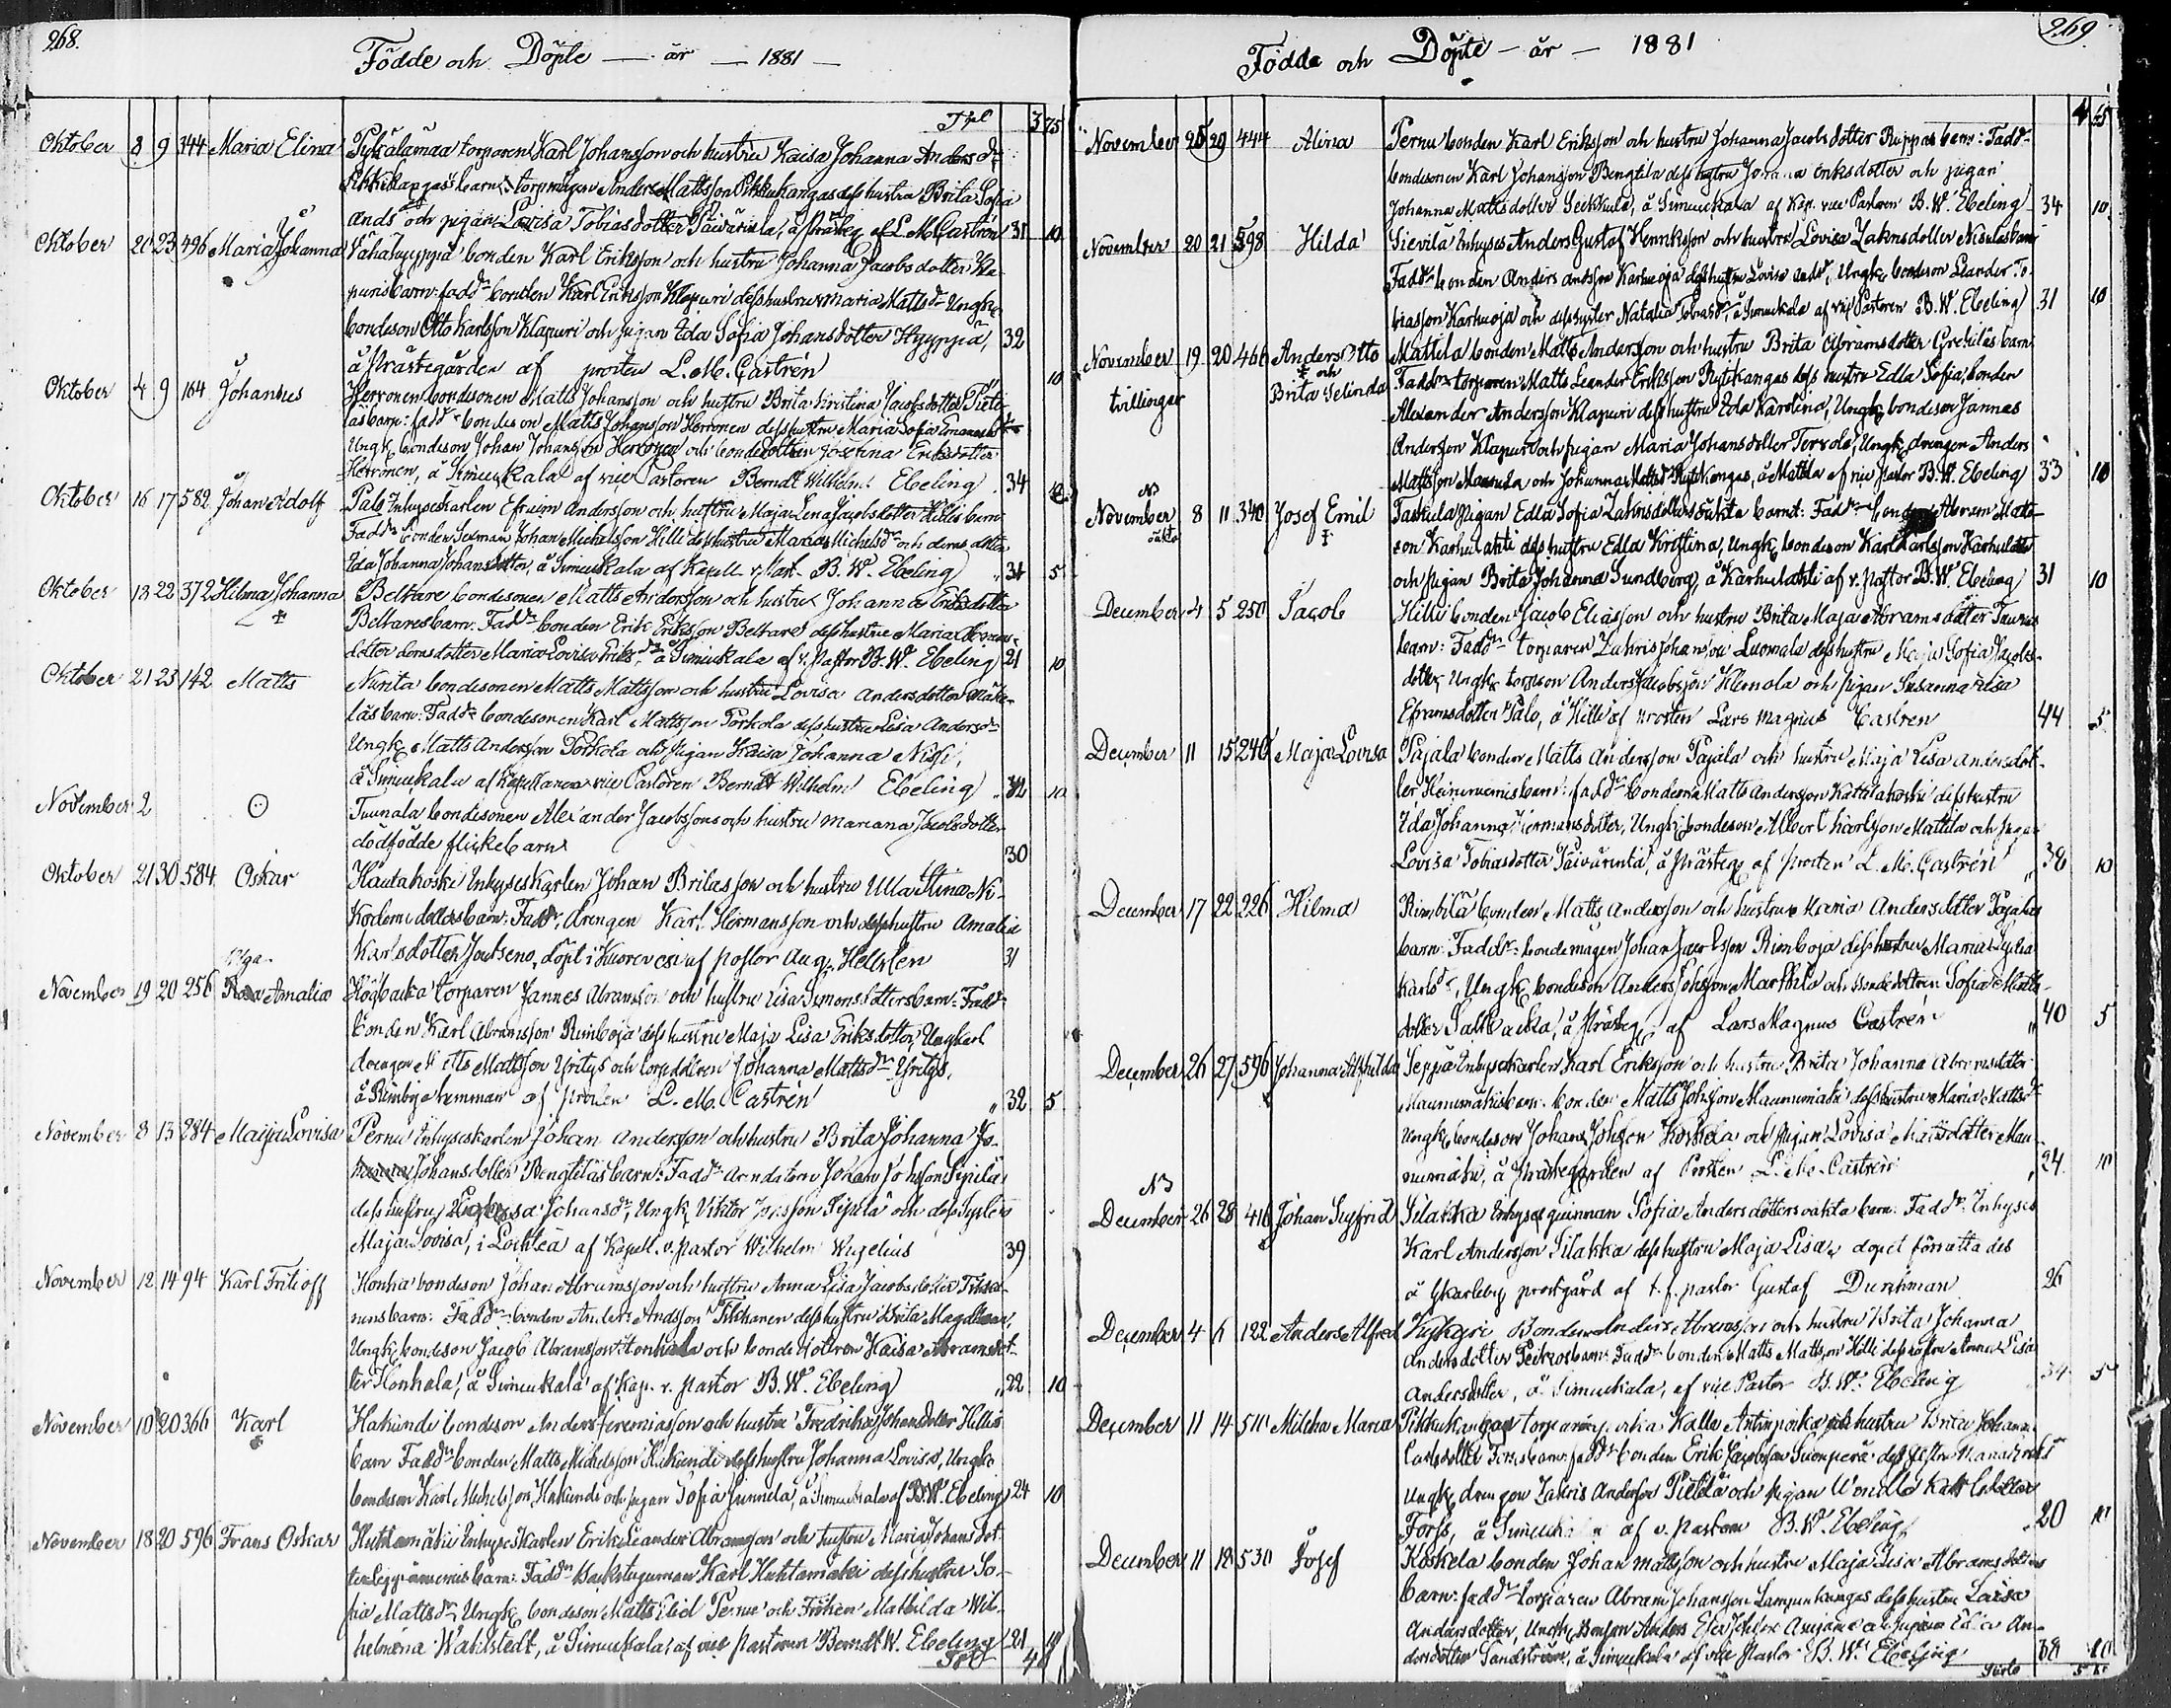 268.
Födde och Döpte — år — 1881 —
Tpl 3 75
Oktober 8 9 344 Maria Elina Pyhälamaa torparen Karl Johansson och hustru Kaisa Johanna Andersdr
Pikkukangas barn: torpmågen Anders Mattsson Pikkukangas dess hustru Brita Sofia
Andsdr och pigan Lovisa Tobiasdotter Päivärinta, å prästeg af L. M. Castrén 31 10
Oktober 20 23 496 Maria Johanna Vähähyyppä bonden Karl Eriksson och hustru Johanna Jacobsdotter Kla-
puris barn: faddr bonden Karl Eriksson Klapuri dess hustru Maria Mattsdr Ungk.
bondeson Otto Karlsson Klapuri och pigan Ida Sofia Johansdotter Hyyppä, 32
å Prästegården af prosten L. M. Castrén 10
Oktober 4 9 164 Johannes Herronen bondesonen Matts Johansson och hustru Brita Kristina Jacobsdotter Pietи-
läs barn: fadd. bondeson Matts Johansson Herronen dess hustru Maria Sofia
Ungk. bondeson Johan Johansson Herronen och bondedottren Josefina Eriksdotter
Herronen, å Simuukala af vice Pastoren Berndt Wilhelm Ebeling 34
Oktober 16 17 582 Johan Adolf Palo Inhyseskarlen Efraim Andersson och hustru Maja Lena Jacobsdotter Hillis barn
Faddr bonden Sexman Johan Michelsson Hilli dess hustru Maria Michelsdr och deras dotter
Ida Johanna Johansdotter, å Simuukala af Kapell. v. Past. B. W. Ebeling 31 5
Oktober 13 22 372 Hilma Johanna Beltare bondesonen Matts Andersson och hustru Johanna Eriksdotter
Beltares barn: Faddr bonden Erik Eriksson Beltare dess hustru Maria Abrams-
dotter deras dotter Maria Lovisa Eriksdr, å Simuukala af v. Pastor B. W. Ebeling 21 10
Oktober 21 23 142 Matts Nurila bondesonen Matts Mattsson och hustru Lovisa Andersdotter Mäke-
läs barn: Faddr bondesonen Karl Mattsson Porkola dess hustru Lisa Andersdr
Ungk. Matts Andersson Porkola och pigan Kaisa Johanna Nissi,
å Simuukala af Kapellanen vice Pastoren Berndt Wilhelm Ebeling 10
November 2 Tuunala bondesonen Alexander Jacobsson och hustru Mariana Jacobsdotter
dödfödde flickebarn 30
Oktober 21 30 584 Oskar Hautakoski Inhyseskarlen Johan Britasson och hustru Ulla Stina Ni-
kodemi dotters barn: Faddr, drengen Karl Hermansson och dess hustru Amalia
Karlsdotter Joutseno, döpt i Kuorevesi af pastor Aug. Hellsten 31
November 19 20 256 Olga Amalia Högbacka torparen Jannes Abramsson och hustru Lisa Simonsdotters barn: Faddr
bonden Karl Abramsson Rimboja dess hustru Maja Lisa Eriksdotter, Ungkarl
drengen Matts Mattsson Yritys och torpdottren Johanna Mattsdr Yritys,
å Rimboja hemman af prosten L. M. Castrén 32 5
November 8 13 284 Maija Lovisa Pernu Inhyseskarlen Johan Andersson och hustru Brita Johanna Jo-
Johansdotter Bengtiläs barn: Faddr Arendatorn Johan Johsson Sipilä
dess hustru Johansdr, Ungk. Viktor Johsson Sipilä och dess Syster
Maja Lovisa, i Lochteå af Kapell. v. Pastor Wilhelm Wegelius 39
November 12 14 94 Karl Fritioff Honka bondeson Johan Abramsson och hustru Anna Lisa Jacobsdotter Tikka-
nens barn: Faddr bonden Anders Andsson Tikkanen dess hustru Brita Magdlena,
Ungk. bondeson Jacob Abramsson Honkala och bondedottren Kaisa Abramsdot-
ter Honkala, å Simuukala af Kap. v. Pastor B. W. Ebeling 22 10
November 10 20 366 Karl Hakunde bondeson Anders Jeremiasson och hustru Fredrika Johansdotter Hillis
barn Faddr bonden Matts Michelsson Hakunde dess hustru Johanna Lovisa, Ungk.
bondeson Karl Michelsson Hakunde och pigan Sofia Junnela, å Simuukala af B. W. Ebeling 24 10
November 18 20 596 Frans Oskar Huhtamäki Inhyseskarlen Erik Leander Abramsson och hustru Maria Johansdot-
ter barn: Faddr Backstuguman Karl Huhtamäki dess hustru So-
fia Mattsdr, Ungk. bondeson Matts Elid Pernu och Fröken Mathilda Wil-
helmina Wahlstedt, å Simuukala af vice Pastoren Berndt W. Ebeling 21 10
269
Födda och Döpte — år — 1881
November 25 29 444 Alina Pernu bonden Karl Eriksson och hustru Johanna Jacobsdotter Ruppas barn: Faddr
bondesonen Karl Johansson Bengtila dess hustru Johanna Eriksdotter och pigan
Johanna Mattsdotter Seikkula, å Simuukala af Kap. vice Pastoren B. W. Ebeling 34 10
November 20 21 598 Hilda Sievilä Inhyses Anders Gustaf Henriksson och hustru Lovisa Zakrisdotter Niskalas barn
Faddr bonden Anders Andsson Karhuoja dess hustru Lovisa Andsdr, Ungk. bondeson Leander To-
biasson Karhuoja och dess syster Natalia Tobiasdr, å Simuukala af vice Pastoren B. W. Ebeling 31 10
November 19 20 466 Anders Otto Mattila bonden Matts Andersson och hustru Brita Abramsdotter Grekiläs barn
tvillingar och Brita Selinda Faddr torparen Matts Leander Eriksson Rytikangas dess hustru Edla Sofia, bonden
Alexander Andersson Klapuri dess hustru Ida Karolina, Ungk. bondeson Jannes
Andersson Klapuri och pigan Maria Johansdotter Tervola, Ungk. drengen Anders
Mattsson Mansula och Johanna Mattsdr Rytikangas, å Mattila af vice Pastor B. W. Ebeling 33 10
NB
November 8 11 340 Josef Emil Taskula Pigan Edla Sofia Zakrisdotters oäkta barn: Faddr bonden Abram Mats-
oäkta son Karhulahti dess hustru Edla Kristina, Ungk. bondeson Karl Karlsson Karhulahti
och Pigan Brita Johanna Sundberg, å Karhulahti af v. Pastor B. W. Ebeling 31 10
December 4 5 250 Jacob Hilli bonden Jacob Eliasson och hustru Brita Maja Abramsdotter Taunus
barn: Faddr torparen Zakris Johansson Luomala dess hustru Maja Sofia Jacobs-
dotter, Ungk. torpson Anders Jacobsson Hemola och pigan Susanna Lisa
Eframsdotter Palo, å Hilli af prosten Lars Magnus Castren 44 5
December 11 15 246 Maja Lovisa Pajala bonden Matts Andersson Pajala och hustru Maja Lisa Andersdot-
ter Heinineniemis barn: faddr bonden Matts Andersson Kattilakoski dess hustru
Ida Johanna Hermansdotter, Ungk. bondeson Albert Karlsson Mattila och pigan
Lovisa Tobiasdotter Päivärinta, å prästeg. af prosten L. M. Castrén 38 10
December 17 22 226 Hilma Rimbilä bonden Matts Andersson och hustru Maria Andersdotter Pajalas
barn: Faddr: bondemågen Johan Jacobsson Rimboja dess hustru Maria Lydia
Karlsdr, Ungk. bondeson Anders Johsson Marttila och bondedottren Sofia Matts-
dotter Saltbacka, å prästeg. af Lars Magnus Castrén 40 5
December 26 27 596 Johanna Alfhilda Seppä Inhyseskarlen Karl Eriksson och hustru Brita Johanna Abramsdotter
Maunumäkis barn: bonden Matts Johsson Maunumäki dess hustru Maria Mattsdr
Ungk. bondeson Johan Johsson Koskela och pigan Lovisa Mattsdotter Mau-
numäki, å prästegården af Prosten L. M. Castrén 24 10
NB
December 26 28 416 Johan Sigfrid Silakka Inhyses quinnan Sofia Andersdotters oäkta barn: Faddr Inhyses
Karl Andersson Silakka dess hustru Maja Lisa, dopet förrättades
å Gkarleby prostgård af t. f. pastor Gustaf Durchman 26
December 4 6 122 Anders Alfred Bonden Anders Abramsson och hustru Brita Johanna
Andersdotter barn: Faddr bonden Matts Mattsson Hilli dess hustru Anna Lisa
Andersdotter, å Simuukala, af vice Pastor B. W. Ebeling 34 5
December 11 14 511 Milda Maria Pikkukangas torparen Kalle Antinpoika och hustru Brita Johanna
barn: faddr bonden Erik Jacobsson Suonperä dess hustru Maria
Ungk. drengen Zakris Andersson Pietilä och pigan
Forss, å Simuukala af v. Pastorn B. W. Ebeling 20 10
December 11 18 530 Josef Koskela bonden Johan Mattsson och hustru Maja Lisa Abramsdotters
barn: faddr torparen Abram Johansson Lampinkangas dess hustru Kaisa
Andersdotter, Ungk. An-
dersdotter Sandström, å Simuukala af vice Pastor B. W. Ebeling 38 10